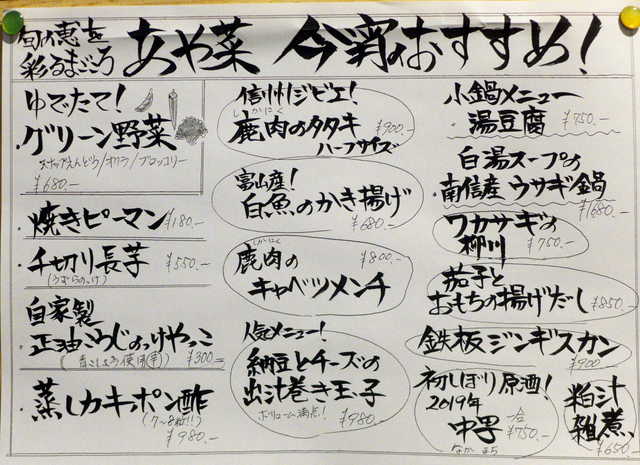 旬の恵を
彩るまごころ
あや菜 今宵のおすすめ!
ゆでたて!
グリーン野菜
スナップえんどう/オクラ/ブロッコリー
¥680.-
焼きピーマン ¥180.-
千切り長芋 ¥550.-
(うずらのっけ)
自家製
正油こうじのっけやっこ
(青こしょう使用(辛)) ¥300.-
蒸しカキポン酢
(7〜8粒!!)
¥980.-
信州ジビエ!
しかにく
鹿肉のタタキ ¥900.-
ハーフサイズ
富山産!
白魚のかき揚げ
¥680.-
しかにく
鹿肉の ¥800.-
キャベツメンチ
人気メニュー!
納豆とチーズの
出汁巻き玉子
ボリューム満点! ¥980.-
小鍋メニュー
・湯豆腐 ¥750.-
白湯スープの
・南信産 ウサギ鍋
¥1680.-
ワカサギの
柳川 ¥750.-
茄子と
おもちの揚げだし ¥850.-
鉄板ジンギスカン
¥900
初しぼり原酒!
2019年 一合
中男 ¥750.-
なかまち
粕汁
雑煮
¥650.-